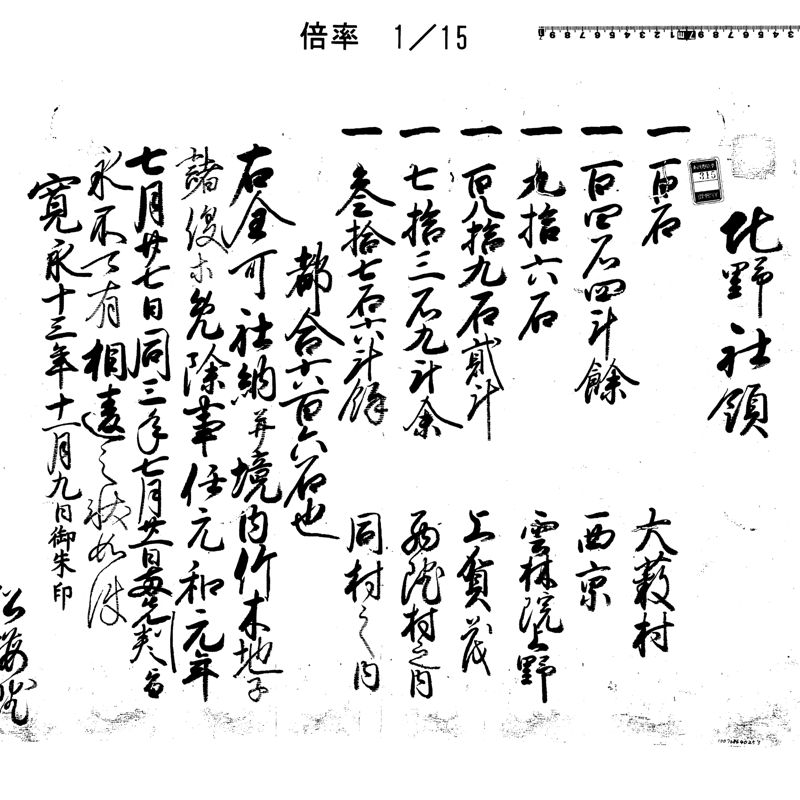 倍率 1/15
315
北野社領
一 百石 大薮村
一 百四石四斗餘 西京
一 九拾六石 雲林院上野
一 百八拾九石貳斗 上賀茂
一 七拾三石九斗余 西院村之内
一 叄拾七石六斗餘 同村之内
都合六百六石也
右全可社納并境内竹木地子
諸役等免除事任元和元年
七月廿七日同三年七月廿一日両先判旨
永不可有相違之状如件
寛永十三年十一月九日御朱印